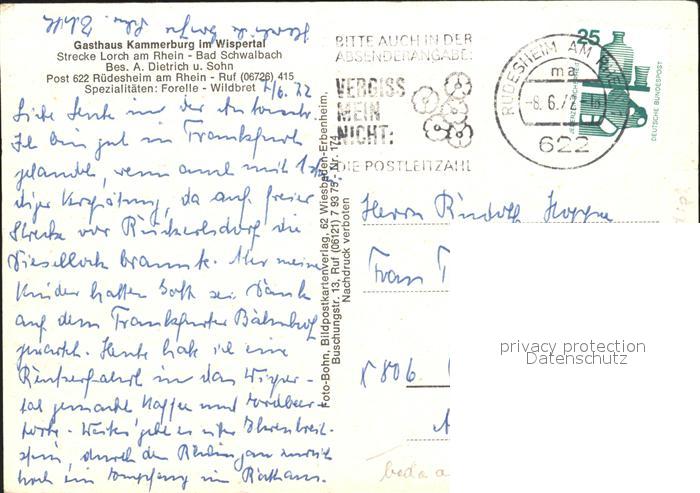 Gasthaus Kammerburg im Wispertal
Strecke Lorch am Rhein - Bad Schwalbach
Bes. A. Dietrich u. Sohn
Post 622 Rüdesheim am Rhein - Ruf (06726) 415
Spezialitäten: Forelle - Wildbret
/6. 72
Liebe Leute in der
bin gut in Frankfurt
gelandet, wenn auch mit
diger Verspätung, da auf freier
Strecke vor Rückersdorf die
Diesellok brannte. Aber meine
Kinder hatten Gott sei Dank
auf dem Frankfurter Bahnhof
gewartet. Heute hab ich eine
in das Wisper-
tal gemacht Kaffee und Erdbeer-
torte. Weiter
durch den Rheingau zurück
noch ein Empfang im Rathaus.
Foto-Bohn, Bildpostkartenverlag, 62 Wiesbaden-Erbenheim,
Buschungstr. 13, Ruf (06121) 7 9375 - Nr. 174
Nachdruck verboten
BITTE AUCH IN DER
ABSENDERANGABE:
VERGISS
MEIN
NICHT:
DIE POSTLEITZAHL
RÜDESHEIM AM RHEIN
ma
-8. 6. 72
622
25
DEUTSCHE BUNDESPOST
Herrn Rudolf Hoppe
8806
privacy protection
Datenschutz